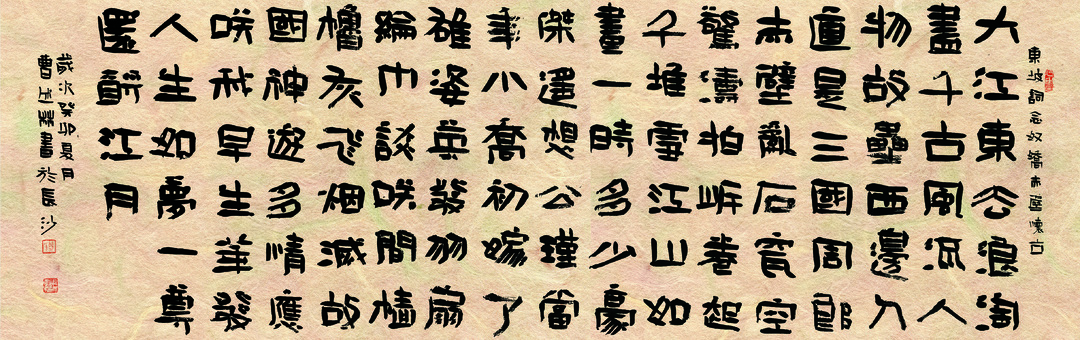 東坡詞念奴嬌赤壁懷古
大江東去浪淘
盡千古風流人
物故壘西邊人
道是三國周郎
赤壁亂石穿空
驚濤拍岸卷起
千堆雪江山如
畫一時多少豪
傑遙想公瑾當
年小喬初嫁了
雄姿英發羽扇
綸巾談咲間檣
櫓灰飛烟滅故
國神遊多情應
咲我早生華髮
人生如夢一尊
還酹江月
歲次癸卯夏月
曹榮書於長沙